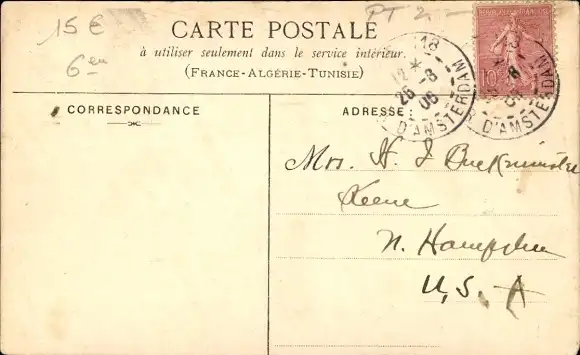 15 € PT 2 —
6 eu
CARTE POSTALE
à utiliser seulement dans le service intérieur.
(FRANCE-ALGÉRIE-TUNISIE)
RÉPUBLIQUE FRANÇAISE
10
18
12 *
26 - 8
06
D'AMSTERDAM
D'AMSTERDAM
CORRESPONDANCE
ADRESSE
Mrs. H. J. Buckminster
Keene
N. Hampshire
U. S. A